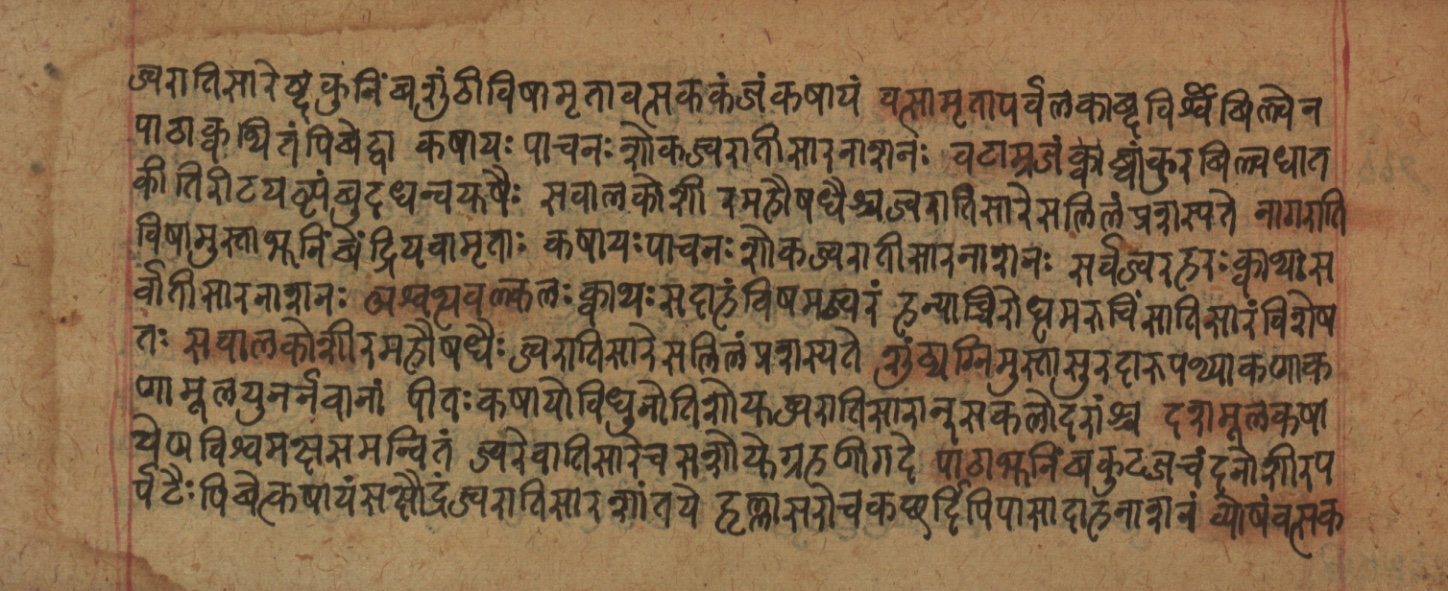 ज्वरातिसारेष्टंकुनिंबशुंठीविषामृतावत्सककंजंकषायं वत्सामृतापर्वलकाब्दविश्वंबिल्वेन
पाठाक्वथितंपिबेद्वा कषायः पाचनः शोकज्वरातीसारनाशनः वटाम्रजंब्वांकुरबिल्वधात
कीतिरीटयष्ट्यंबुदधन्वयषैः सवालकोशीरमहौषधैश्चज्वरातिसारेसलिलंप्रशस्यते नागराति
विषामुस्ताभूनिंबेंद्रियवामृताः कषायःपाचनः शोकज्वरातीसारनाशनः सर्वज्वरहरःक्वाथःस
र्वातीसारनाशनः अश्वत्थवल्कलःक्वाथःसदाहंविषमज्वरं हन्याच्चिरोध्मरुचिंसातिसारंविशेष
तः सवालकोशीरमहौषधैः ज्वरातिसारेसलिलंप्रशस्यते शुंठ्यग्निमुस्तासुरदारुपथ्याकणाक
णामूलपुनर्नवानां पीतःकषायोविधुनोतिशोफज्वरातिसारान्सकलोदरांश्च दशमूलकषा
येणविश्वमक्षसमन्वितं ज्वरेवातिसारेचसशोफेग्रहणीगदे पाठाभूनिंबकुटजचंदनोशीरप
र्पटैः पिबेत्कषायंसक्षौद्रंज्वरातिसारशांतये हृल्लासरोचकछर्दिपिपासादाहनाशनं व्योषंवत्सक